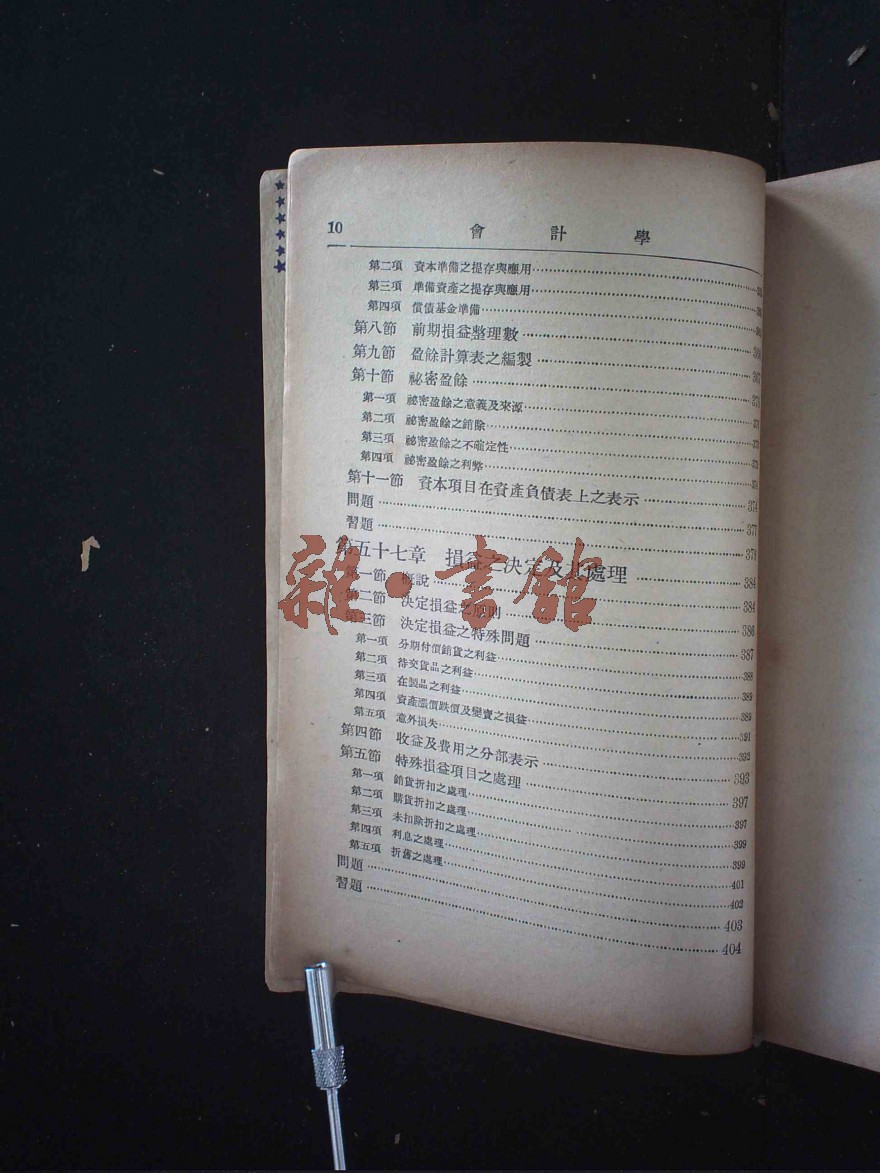 10 會計學
第二項 資本準備之提存與應用
第三項 準備資產之提存與應用
第四項 償債基金準備
第八節 前期損益整理數
第九節 盈餘計算表之編製 367
第十節 祕密盈餘
第一項 祕密盈餘之意義及來源
第二項 祕密盈餘之銷除
第三項 祕密盈餘之不確定性
第四項 祕密盈餘之利弊
第十一節 資本項目在資產負債表上之表示 374
問題 377
習題
雜·書館
第五十七章 損益之決定及其處理 384
第一節 概說 384
第二節 決定損益之原則 386
第三節 決定損益之特殊問題 387
第一項 分期付價銷貨之利益 388
第二項 待交貨品之利益 389
第三項 在製品之利益 389
第四項 資產漲價跌價及變賣之損益 391
第五項 意外損失 392
第四節 收益及費用之分部表示 393
第五節 特殊損益項目之處理 397
第一項 銷貨折扣之處理 397
第二項 購貨折扣之處理 399
第三項 未扣除折扣之處理 399
第四項 利息之處理 401
第五項 折舊之處理 402
問題 403
習題 404